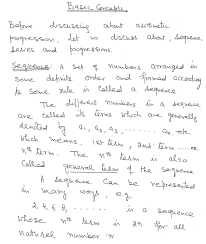 Basic Concepts
Before discussing about arithmetic
progression, let us discuss about, sequence,
series and progressions
Sequence: A set of numbers arranged in
some definite order and formed according
to some rule is called a sequence
The different numbers in a sequence
are called its terms which are generally
denoted by a1, a2, a3, ...... an etc
which means, 1st term, 2nd term ... or
nth term. The nth term is also
called general term of the sequence
A sequence can be represented
in many ways, e.g.
2, 4, 6, 8, ...... is a sequence
whose nth term is 2n for all
natural number n